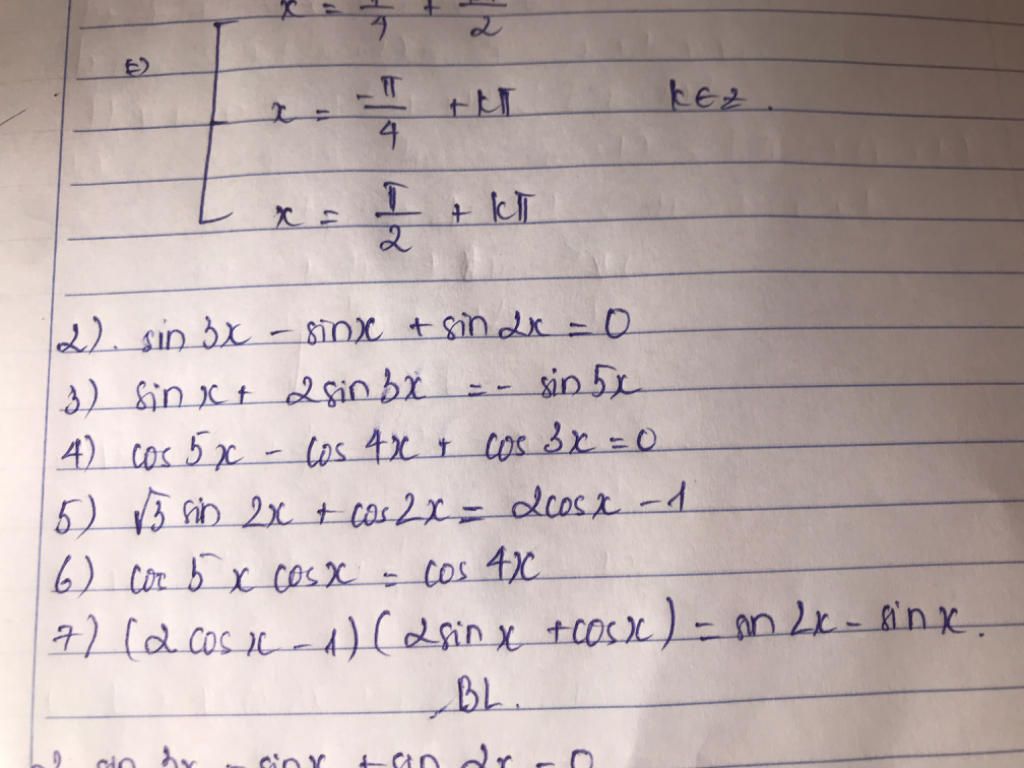 x = π/4 + kπ/2
⇔ x = -π/4 + kπ k∈Z.
x = π/2 + kπ
2). sin 3x - sinx + sin 2x = 0
3) sin x + 2 sin 3x = - sin 5x
4) cos 5x - cos 4x + cos 3x = 0
5) √3 sin 2x + cos 2x = 2cos x - 1
6) cos 5x cosx = cos 4x
7) (2 cos x - 1)(2 sin x + cos x) = sin 2x - sin x.
BL.
sin 3x - sin x + sin 2x = 0